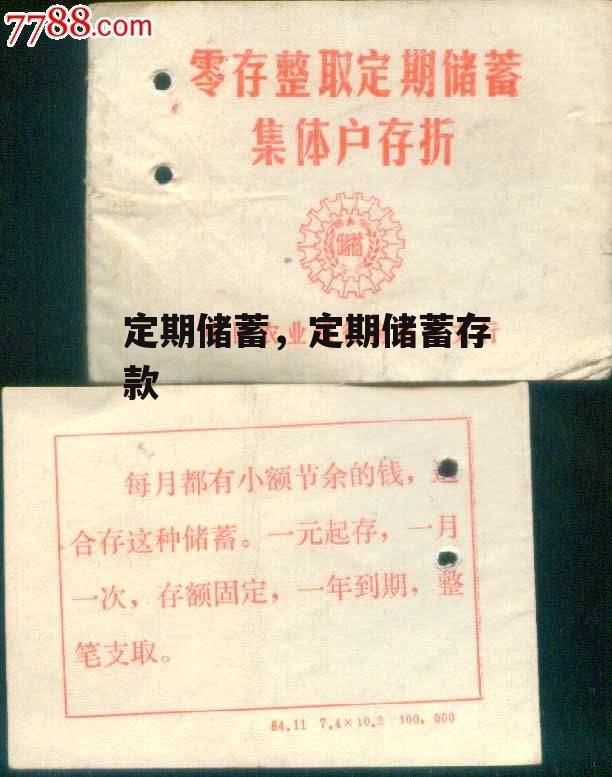 7788.com
零存整取定期储蓄
集体户存折
储蓄
定期储蓄，定期储蓄存
款
农业
行
每月都有小额节余的钱，适
合存这种储蓄。一元起存，一月
一次，存额固定，一年到期，整
笔支取。
84.11 7.4×10.2 100,000